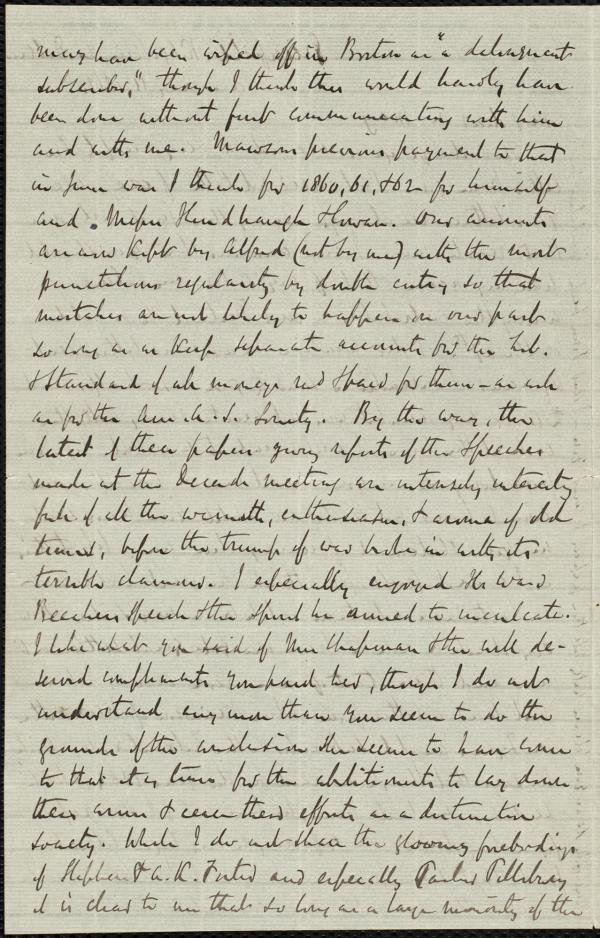 may have been wiped off in Boston as "a delinquent
subscriber," though I think this would hardly have
been done without first communicating with him
and with me. Mawson's previous payment to that
in June was I think for 1860, 61, & 62 for himself
and Messrs Hindhaugh & Cowan. Our accounts
are now kept by Alfred (not by me) with the most
punctilious regularity by double entry so that
mistakes are not likely to happen on our part
so long as we keep separate accounts for the Lib.
& Standard of all moneys recd & paid for them – as well
as for the Am. A. S. Society. By the way, the
latest of these papers giving reports of the speeches
made at the Decade meeting are intensely interesting
full of all the warmth, enthusiasm, & aroma of old
times, before the trump of war broke in with its
terrible clamour. I especially enjoyed H. Ward
Beecher's speech & the spirit he aimed to inculcate.
I like what you said of Mrs Chapman & the well de-
served compliments you paid her, though I do not
understand any more than you seem to do the
grounds of the conclusion she seems to have come
to that it is time for the abolitionists to lay down
their arms & cease their efforts as a distinctive
society. While I do not share the gloomy forebodings
of Stephen & A. K. Foster and especially Parker Pillsbury
it is clear to me that so long as a large minority of the